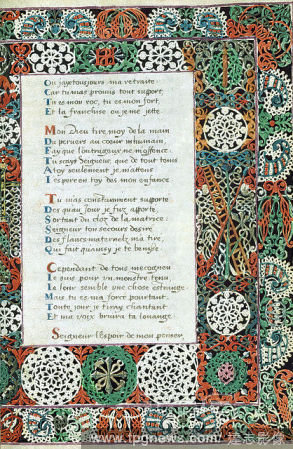 Ou j'aye tousjours ma retraite:
Car tu m'as promis tout support,
Tu es mon roc, tu es mon fort,
Et la franchise ou je me jette

Mon Dieu tire moy de la main
Du pervers au coeur inhumain,
Fay que l'outrageux ne m'offense.
Tu sçays Seigneur, que de tout temps
A toy seulement je m'attens
Espere en toy des mon enfance

Tu m'as constamment supporté
Des qu'au jour je fuz apporté,
Sortant du cloz de la matrice:
Seigneur ton secours desiré
Des flancs maternelz m'a tiré,
Qui fait qu'aussy je te benisse

Cependant de tous mescogneu
Je suis pour un monstre tenu,
Je leur semble une chose estrange
Mais tu es ma force pourtant.
Toute jour je t'iray chantant
Et ma voix bruira ta louange

Seigneur l'espoir de mon penser,
www.tpgnews.com/